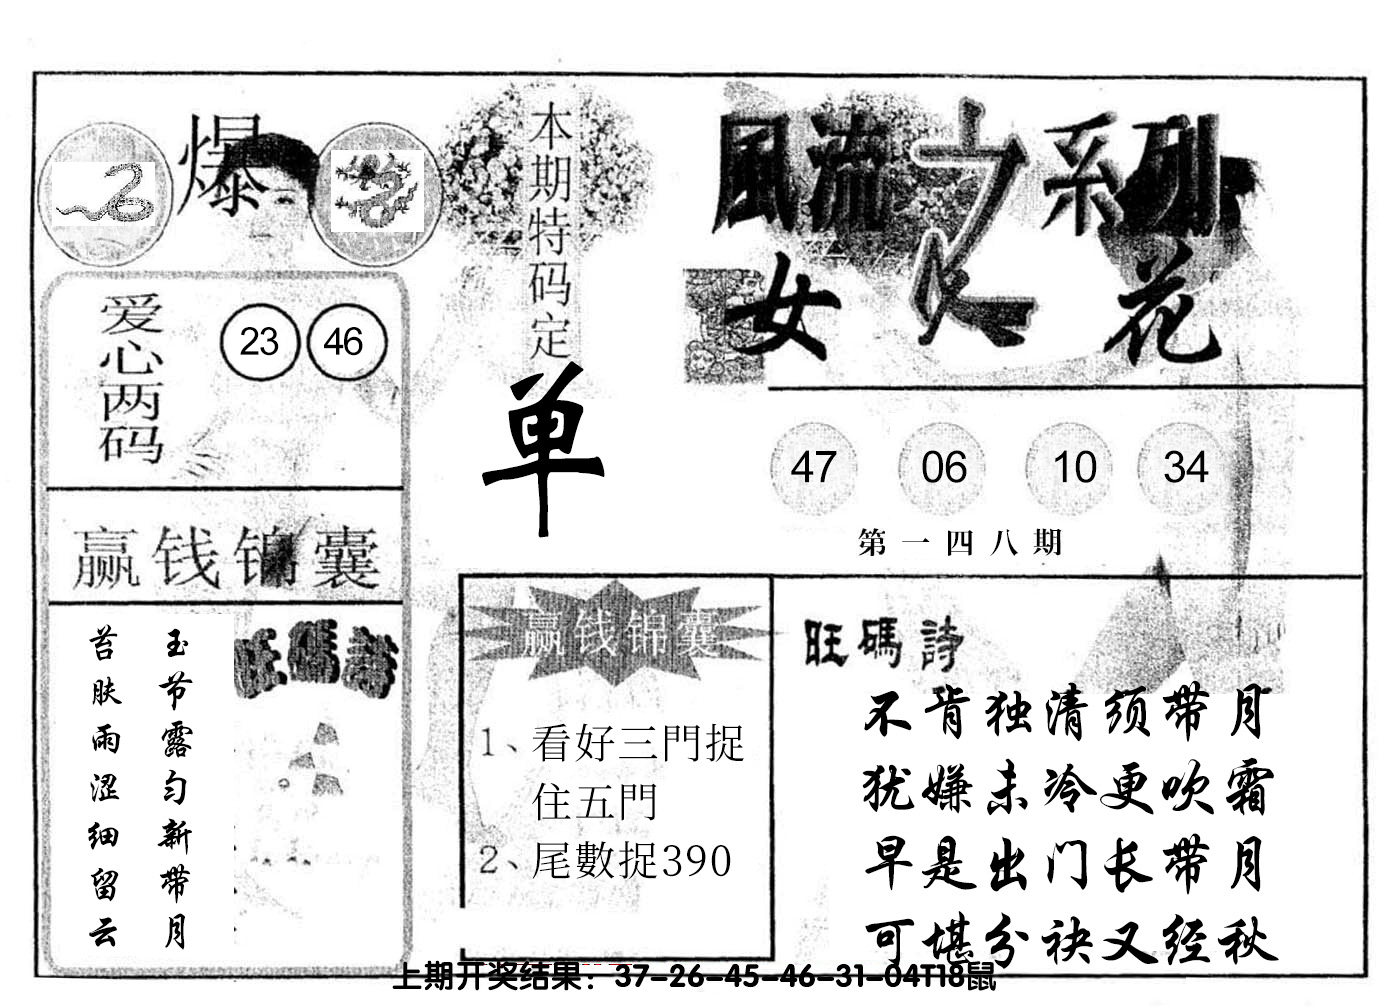 爆
本期特码定
单
風流之系列
女人花
爱心两码
23 46
47 06 10 34
第一四八期
赢钱锦囊
旺碼詩
玉节露匀新带月
苔肤雨涩细留云
赢钱锦囊
1、看好三門捉
住五門
2、尾數捉390
旺碼詩
不肯独清须带月
犹嫌未冷更吹霜
早是出门长带月
可堪分袂又经秋
上期开奖结果：37-26-45-46-31-04T18鼠